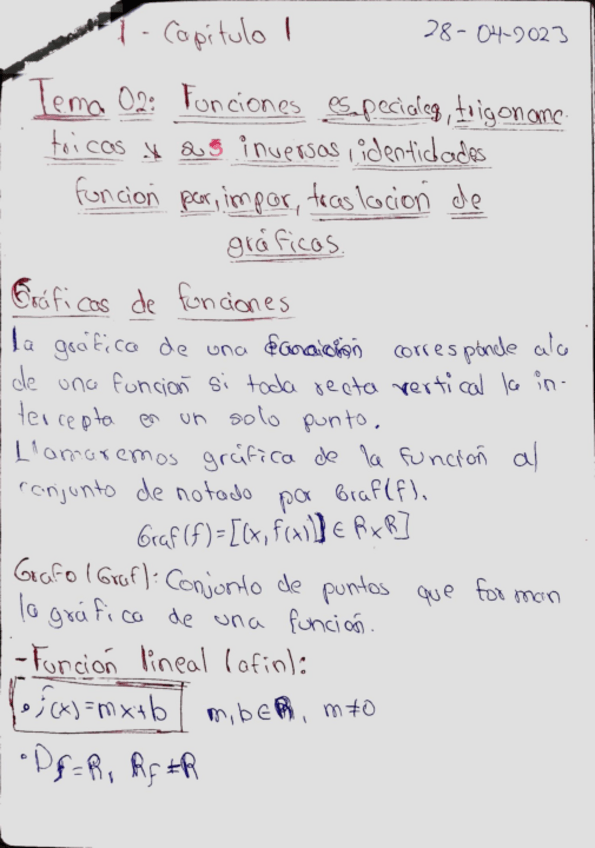 1 - Capítulo 1
28-04-2023
Tema 02: Funciones especiales, trigonome-
tricas y sus inversas, identidades
función par, impar, traslación de
gráficas.
Gráficas de funciones
la gráfica de una corresponde a la
de una función si toda recta vertical la in-
tercepta en un solo punto.
Llamaremos gráfica de la función al
conjunto denotado por Graf(f).
Graf(f)=[(x, f(x))] ∈ R×R]
Grafo (Graf): Conjunto de puntos que forman
la gráfica de una función.
- Función lineal (afin):
• f(x) = mx+b m, b ∈ R, m≠0
• Df = R, Rf = R